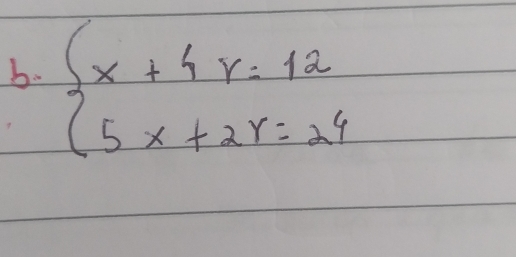 b. { x + 4 y = 12
5 x + 2 y = 24